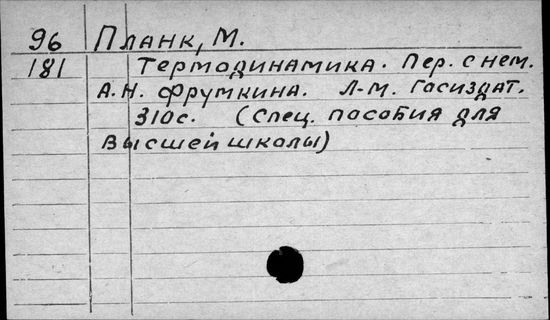 96 Планк, М.
181 Термодинамика. Пер. с нем.
А.Н. Фрумкина. Л-М. Госиздат.
310с. (Спец. пособия для
высшей школы)